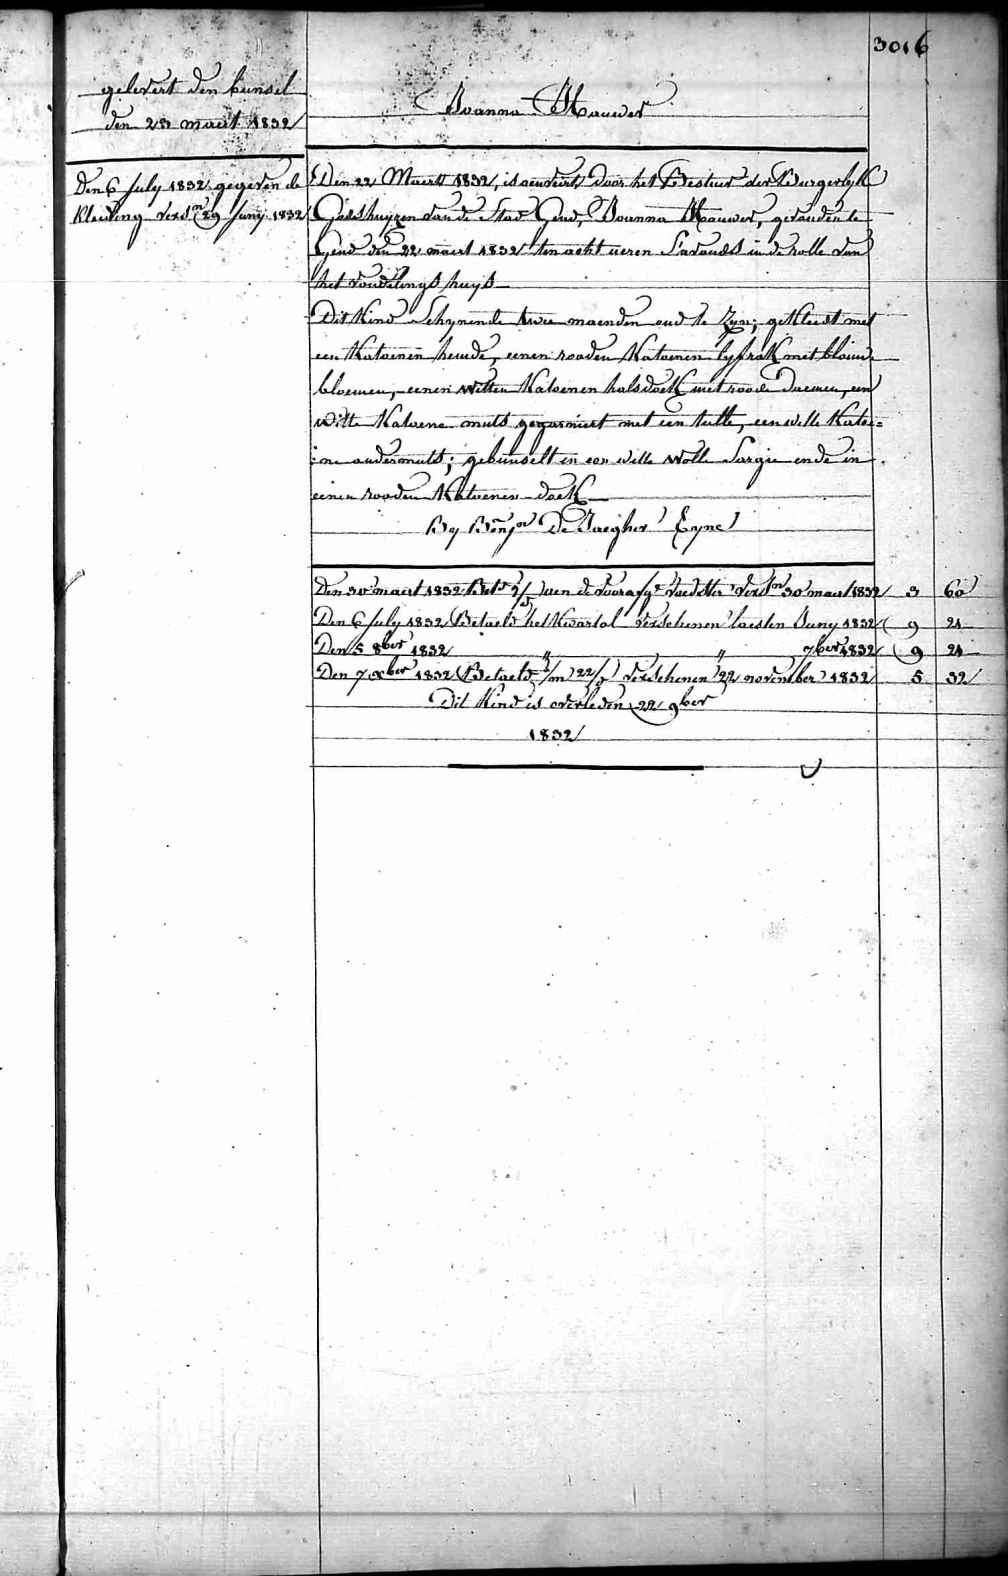 3016
gelevert den bunsel
den 23 maert 1832
Joanna Mauwer
Den 6 July 1832 gegeven de
kleeding versn 29 Juny 1832
Den 22 Maert 1832, is aenveirt door het Bestuer der Burgerlyk
Godshuyzen van de Stad Gend, Joanna Mauwer, gevonden te
Gend den 22 maert 1832 ten acht ueren s'avonds in de rolle van
het vondelings huys
Dit Kind schynende twee maenden oud te zyn; gekleedt met
een Katoenen hemde, eenen rooden Katoenen lyfrok met blauwe
bloemen, eenen witten Katoenen halsdoek met roode, een
witte Katoene muts gegarniert met een tulle, een witte Katoe=
:ne ondermuts; gebunselt in een witte wolle Sargie ende in
eenen rooden Katoenen doek
By De Jaegher Eyne
Den 30 maert 1832 van de voorafge 30 maert 1832 3 60
Den 6 July 1832 Betaeld het Kwartal verschenen laesten Juny 1832 9 21
Den 5 8ber 1832 " " 7ber 1832 9 21
Den 7 Xber 1832 Betaeld 1/m 22/ verschenen 22 november 1832 5 32
Dit Kind is overleden 22 9ber
1832